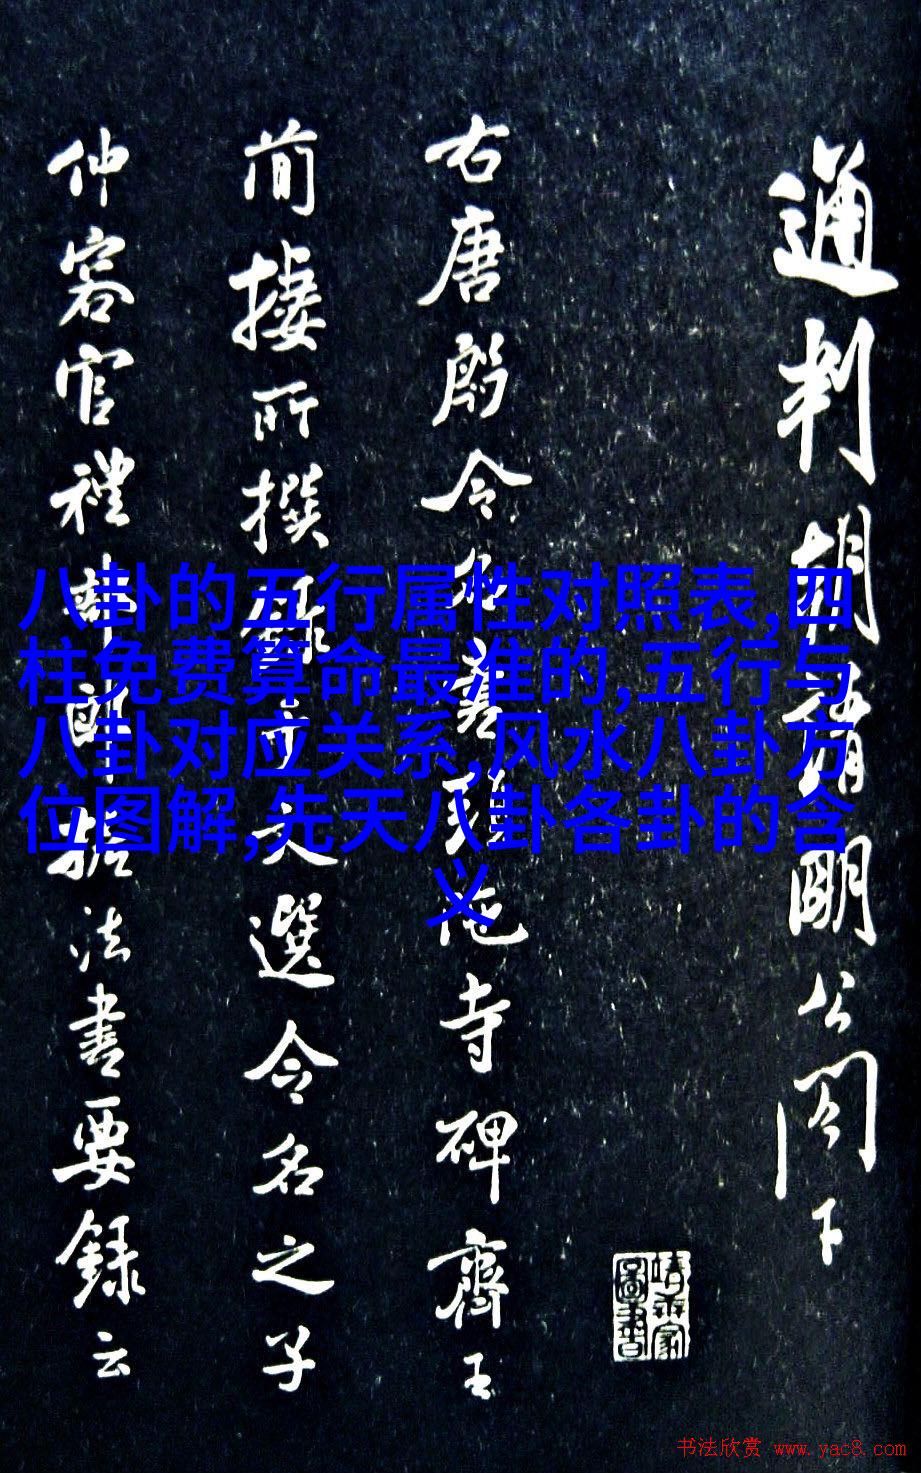 通判胡

公阁下
右唐殷令名書頭陁寺碑齊王
蕳捿所撰録于文選令名之子
仲容官禮部郎中據法書要録云
八卦的五行属性对照表,四
柱免费算命最准的,五行与
八卦对应关系,风水八卦方
位图解,先天八卦各卦的含
义
书法欣赏 www.yac8.com